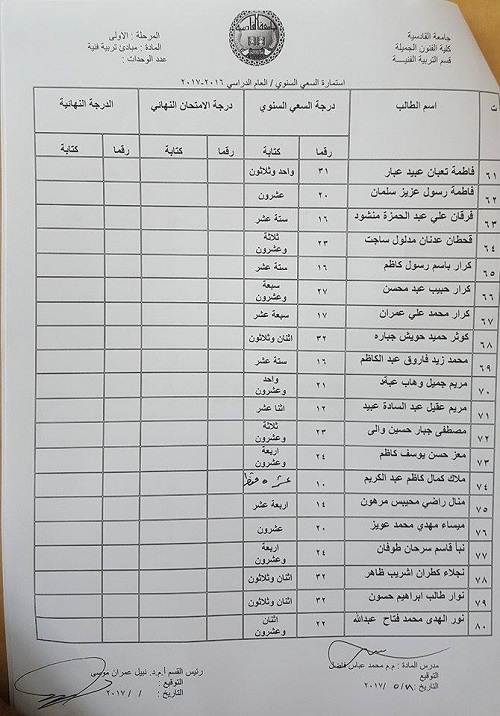 جامعة القادسية
كلية الفنون الجميلة
قسم التربية الفنيـــة
المرحلة : الاولى
المادة : مبادئ تربية فنية
عدد الوحدات :
استمارة السعي السنوي / العام الدراسي ٢٠١٦-٢٠١٧
ت اسم الطالب درجة السعي السنوي درجة الامتحان النهائي الدرجة النهائية
رقما كتابة رقما كتابة رقما كتابة
٦١ فاطمة تعبان عبيد عبار ٣١ واحد وثلاثون
٦٢ فاطمة رسول عزيز سلمان ٢٠ عشرون
٦٣ فرقان علي عبد الحمزة منشود ١٦ ستة عشر
٦٤ قحطان عدنان مدلول ساجت ٢٣ ثلاثة وعشرون
٦٥ كرار باسم رسول كاظم ١٦ ستة عشر
٦٦ كرار حبيب عبد محسن ٢٧ سبعة وعشرون
٦٧ كرار محمد علي عمران ١٧ سبعة عشر
٦٨ كوثر حميد حويش جباره ٣٢ اثنان وثلاثون
٦٩ محمد زيد فاروق عبد الكاظم ١٦ ستة عشر
٧٠ مريم جميل وهاب ٢١ واحد وعشرون
٧١ مريم عقيل عبد السادة عبيد ١٢ اثنا عشر
٧٢ مصطفى جبار حسين والي ٢٣ ثلاثة وعشرون
٧٣ معز حسن يوسف كاظم ٢٤ اربعة وعشرون
٧٤ ملاك كمال كاظم عبد الكريم ١٠ عشرة فقط
٧٥ منال راضي محيبس مرهون ١٤ اربعة عشر
٧٦ ميساء مهدي محمد عويز ٢٠ عشرون
٧٧ نبأ قاسم سرحان طوفان ٢٤ اربعة وعشرون
٧٨ نجلاء كطران اشريب ظاهر ٣٢ اثنان وثلاثون
٧٩ نوار طالب ابراهيم حسون ٣٢ اثنان وثلاثون
٨٠ نور الهدى محمد فتاح عبدالله ٢٢ اثنان وعشرون
مدرس المادة : م.م محمد عباس فاضل
التوقيع
التاريخ : ٥/٨ /٢٠١٧
رئيس القسم أ.م.د. نبيل عمران موسى
التوقيع
التاريخ : / /٢٠١٧